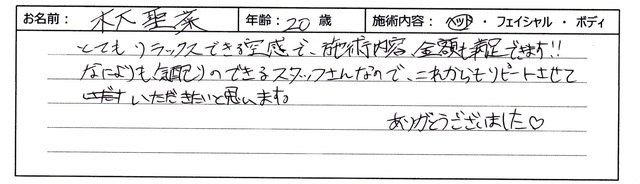 お名前： 林 聖菜 年齢：20 歳 施術内容：ヘッド・フェイシャル・ボディ
とてもリラックスできる空感で、施術内容、金額も満足できます!!
なによりも気配りのできるスタッフさんなので、これからもリピートさせて
いただきたいと思います。
ありがとうございました♡